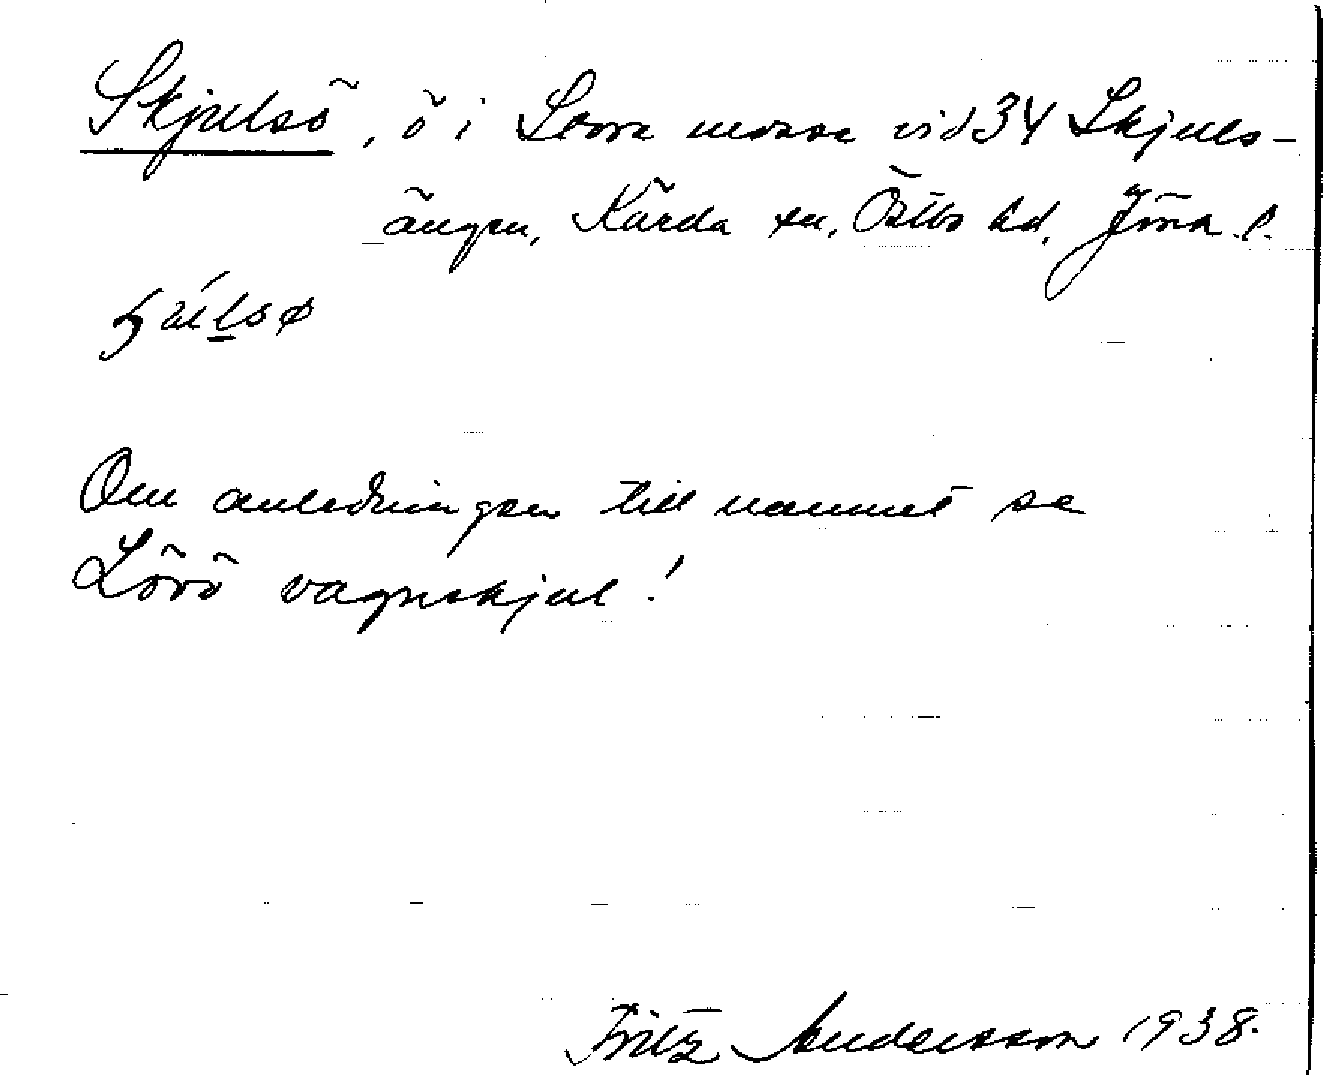 Skjulsö, ö i Stora mosse vid 34 Skjuls-
ängen, Kärda sn, Östbo hd, Jönk. l.
Om anledningen till namnet se
Lövö vagnskjul!
Fritz Andersson 1938.